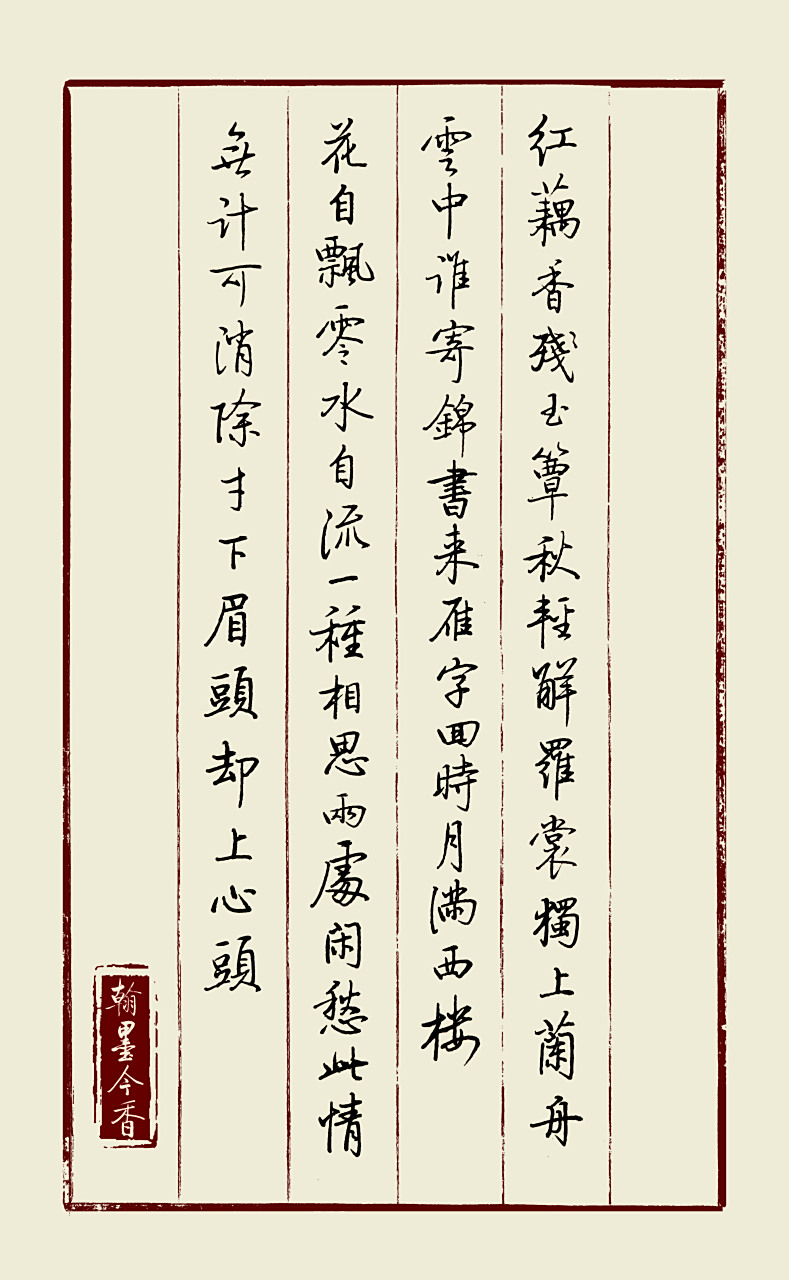 红藕香殘玉簟秋輕解羅裳獨上蘭舟
雲中谁寄錦書来雁字回時月满西楼
花自飄零水自流一種相思兩處闲愁此情
無计可消除才下眉頭却上心頭
翰墨今香